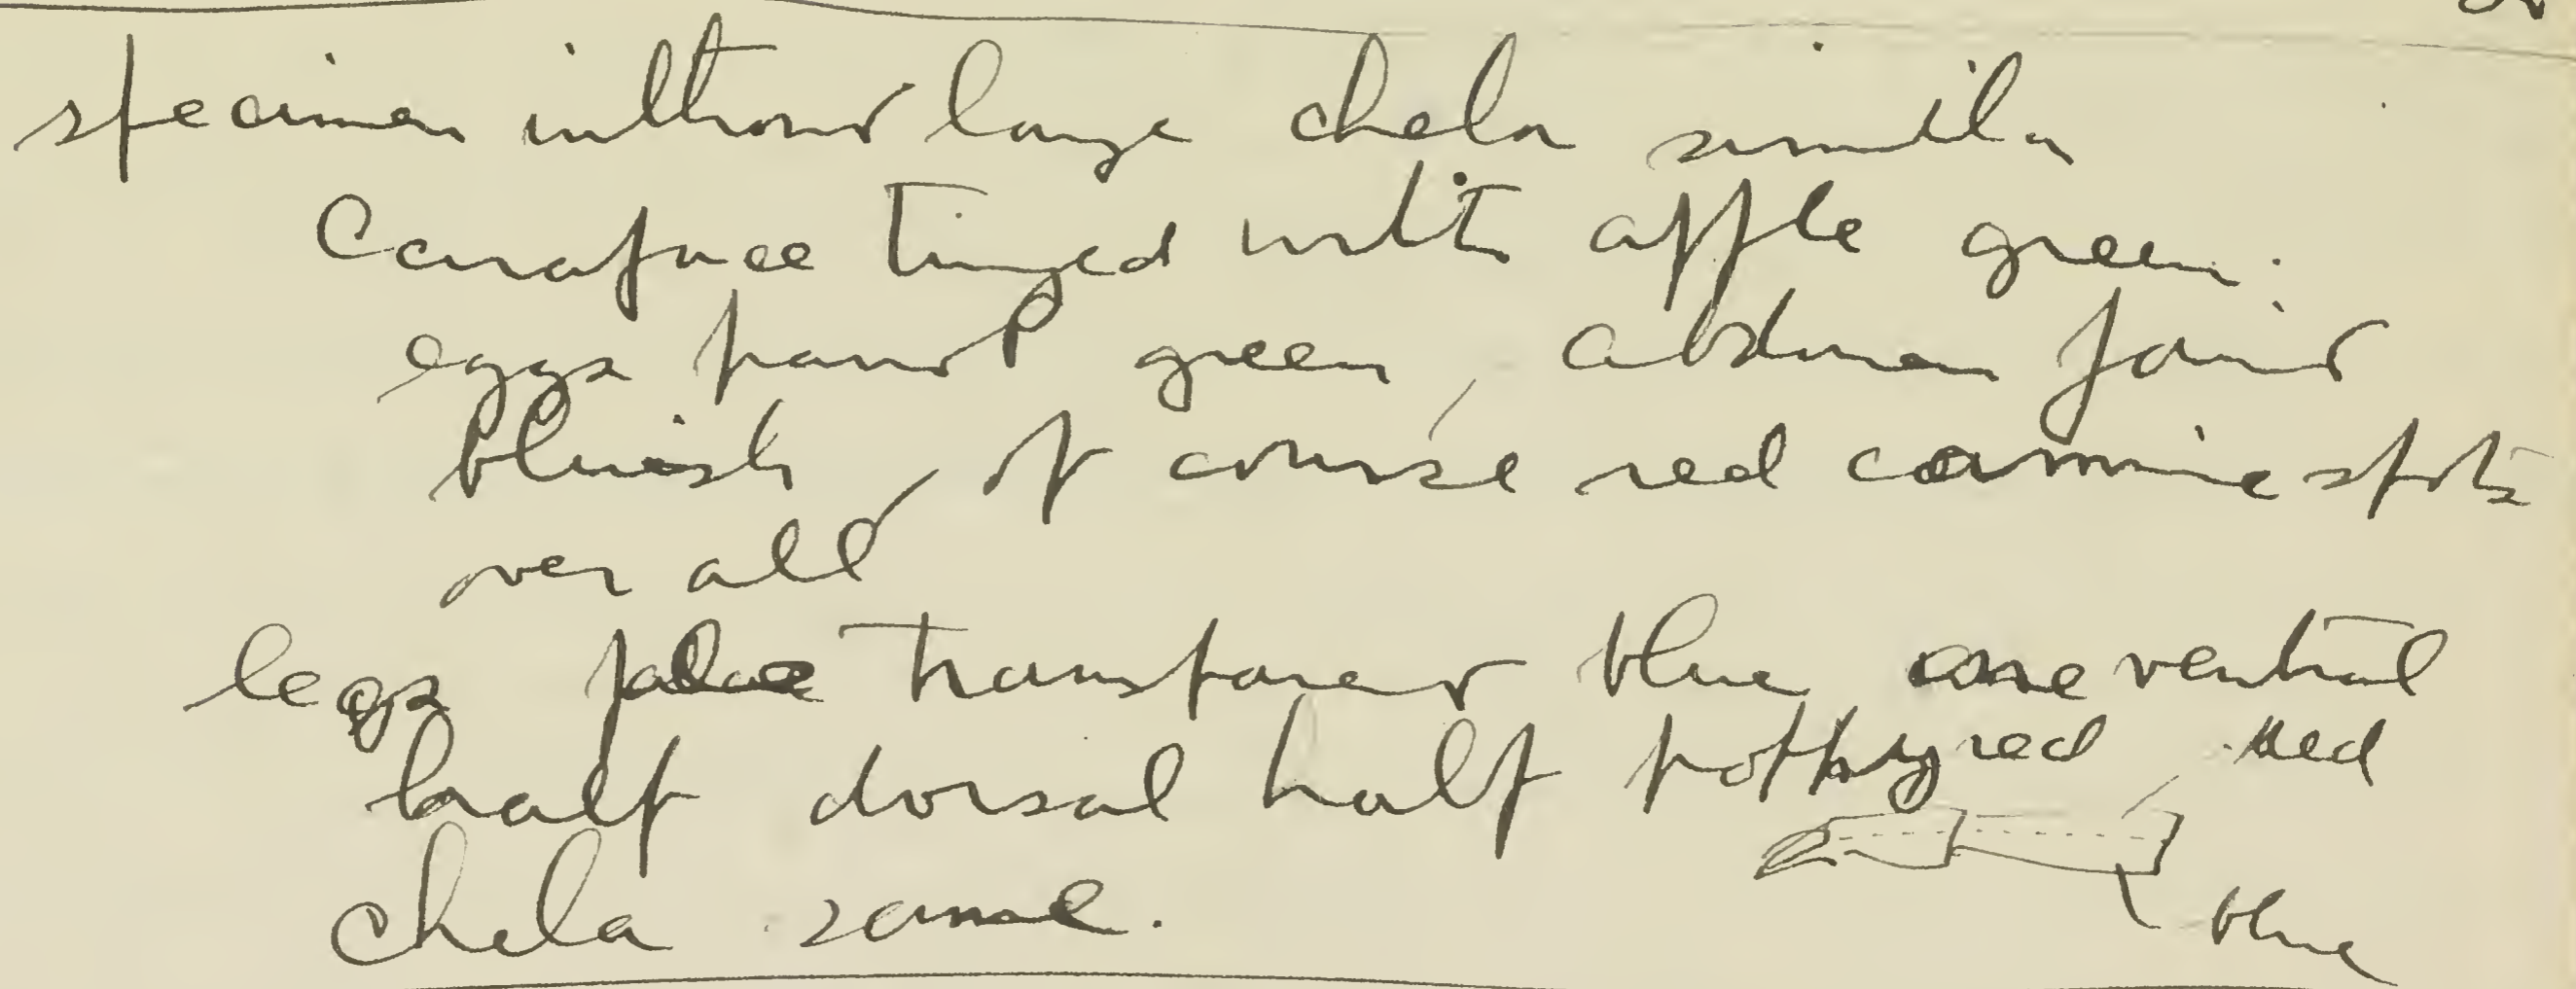 specimen without large chela similar
Carapace tinged with apple green.
eggs parrot green, abdomen faint
bluish, of course red carmine spots
over all
legs pale transparent blue one ventral
half dorsal half poppy red red
chela same.
blue